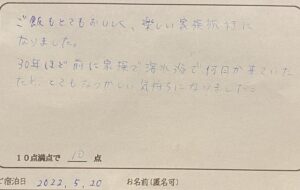 ご飯もとてもおいしく、楽しい家族旅行に
なりました。
30年ほど前に家族で海水浴で何日か来ていた
とてもなつかしい気持ちになりました。
10点満点で 10 点
ご宿泊日 2022.5.20 お名前(匿名可)